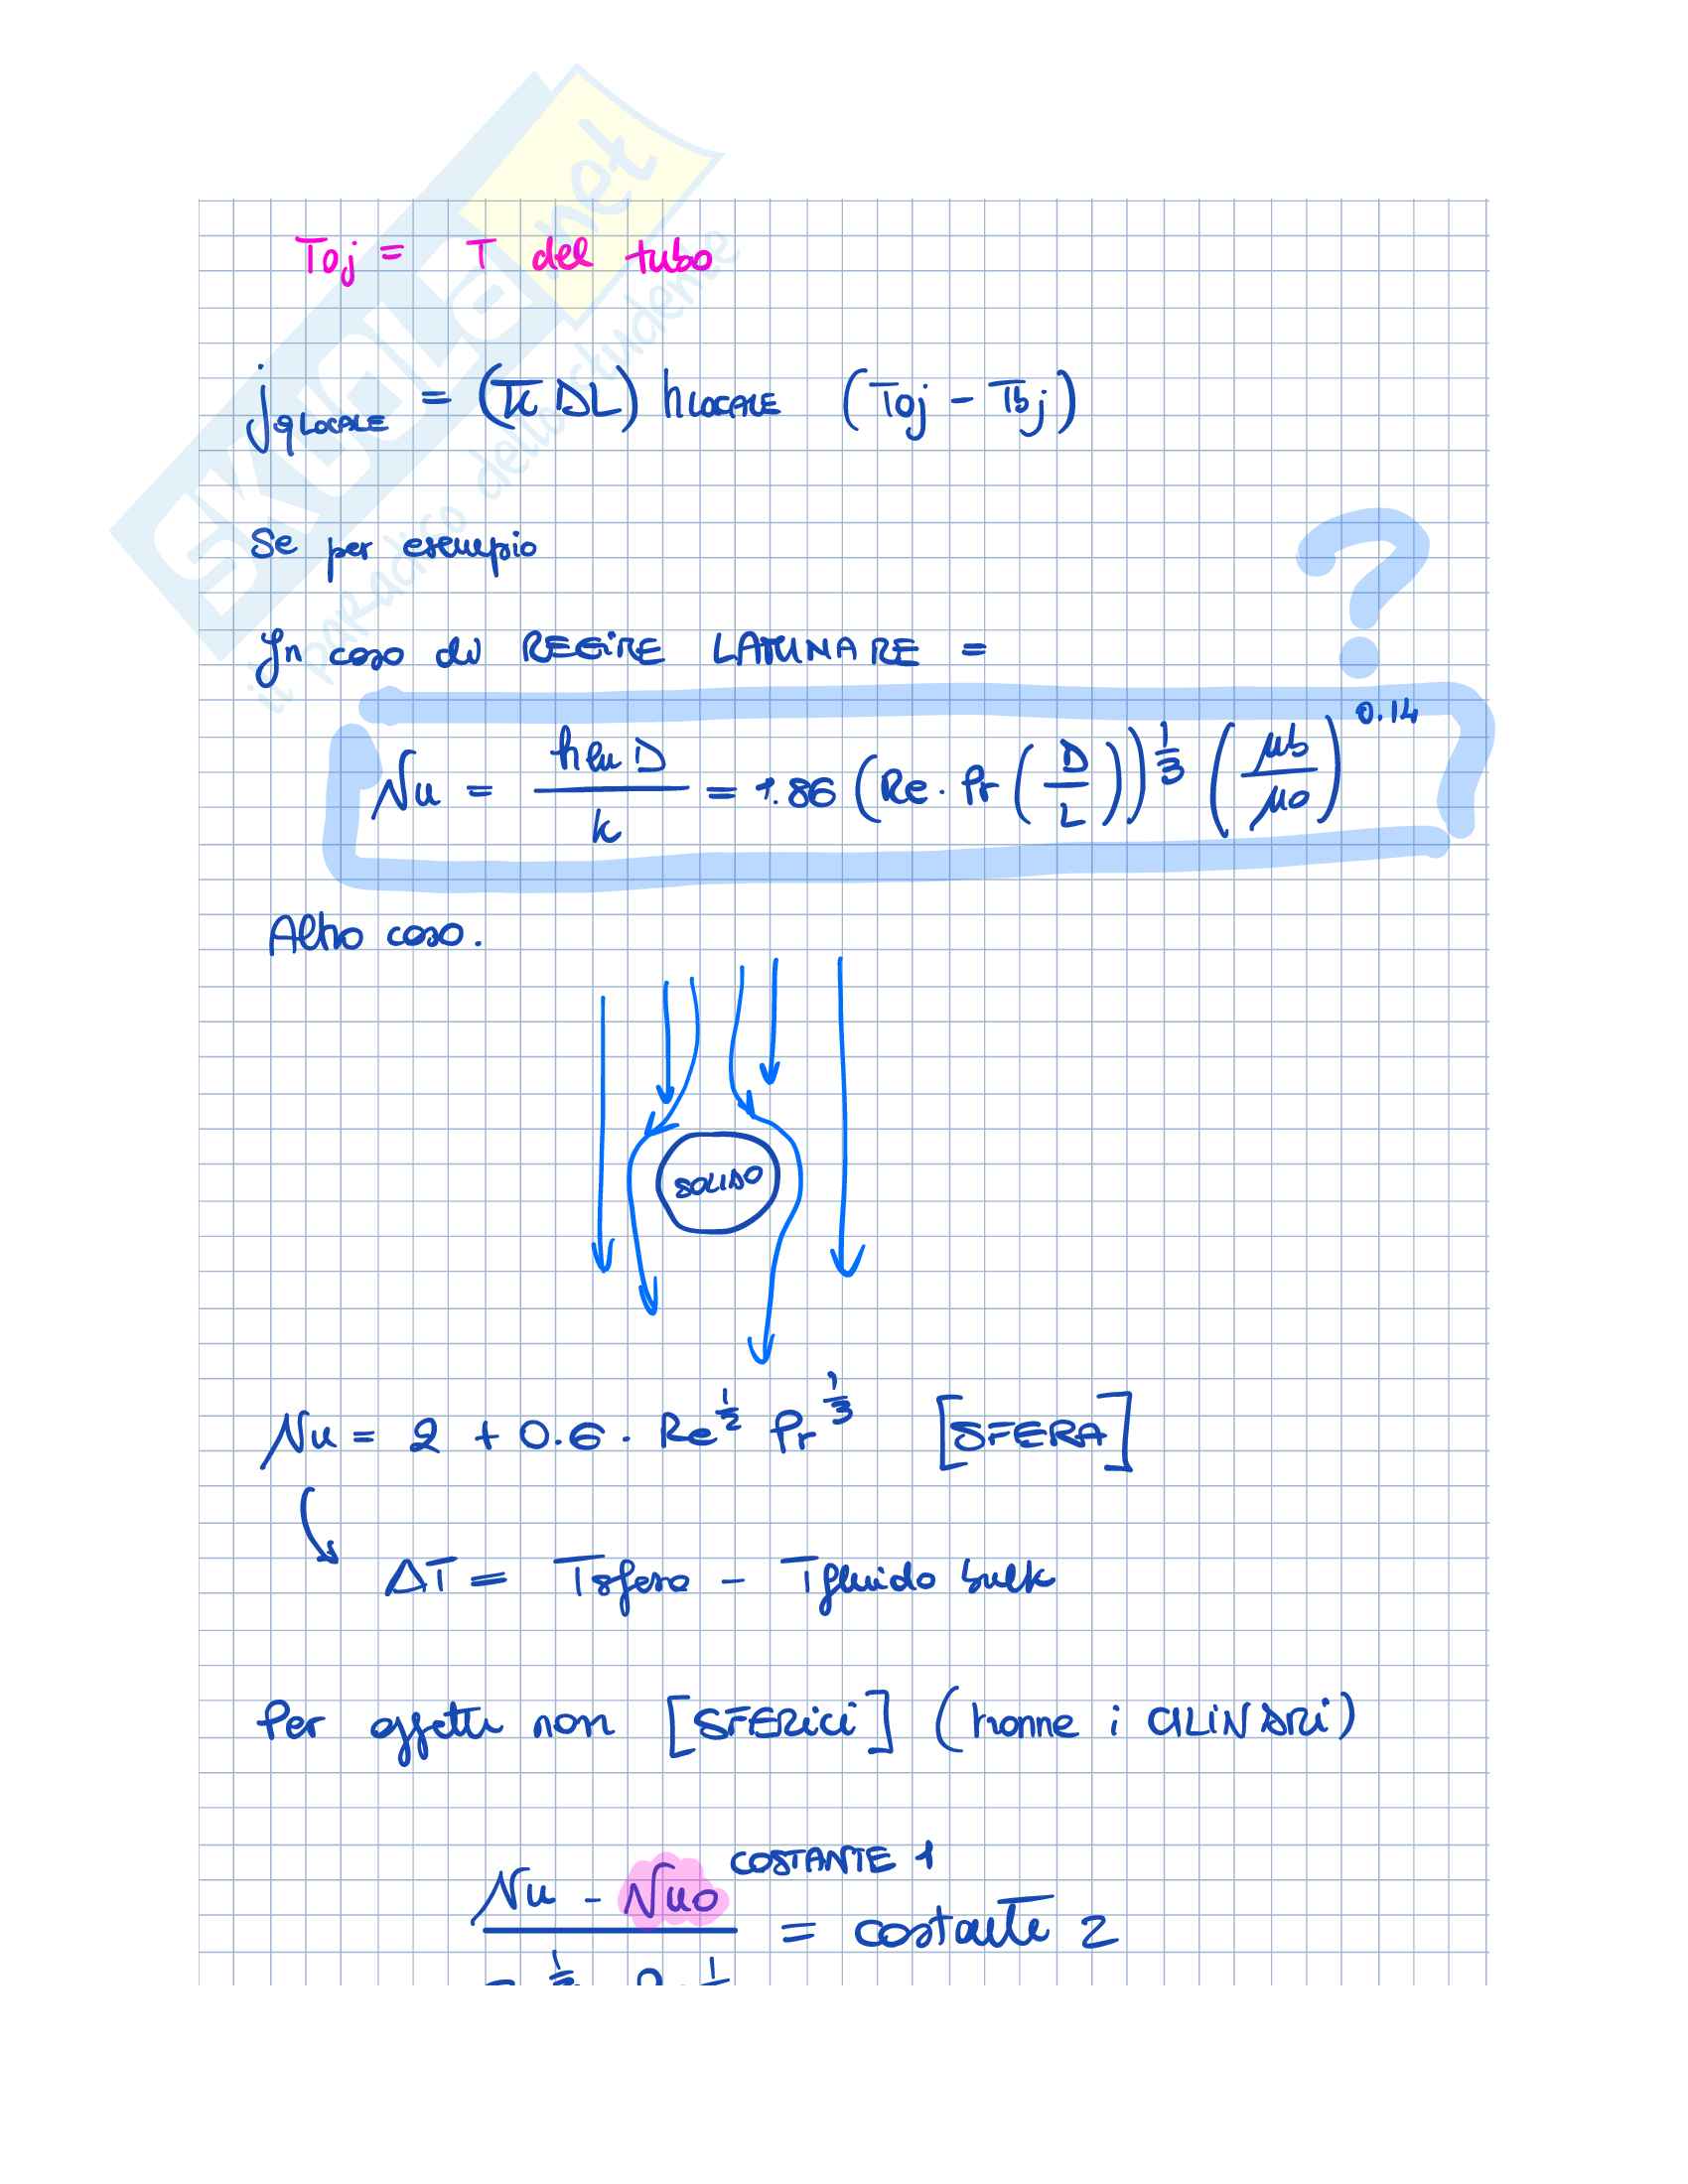 SKUOLA.net
il paradiso dello studente
Toj = T del tubo
jqLOCALE = (π DL) hLOCALE (Toj - Tbj)
Se per esempio
In caso di REGIME LAMINARE =
?
Nu = hln D / k = 1.86 (Re · Pr (D/L))^1/3 (μb/μo)^0.14
Altro caso.
SOLIDO
Nu = 2 + 0.6 · Re^1/2 Pr^1/3 [SFERA]
ΔT = Tsfera - Tfluido bulk
Per oggetti non [SFERICI] (tranne i CILINDRI)
COSTANTE 1
Nu - Nuo = costante 2